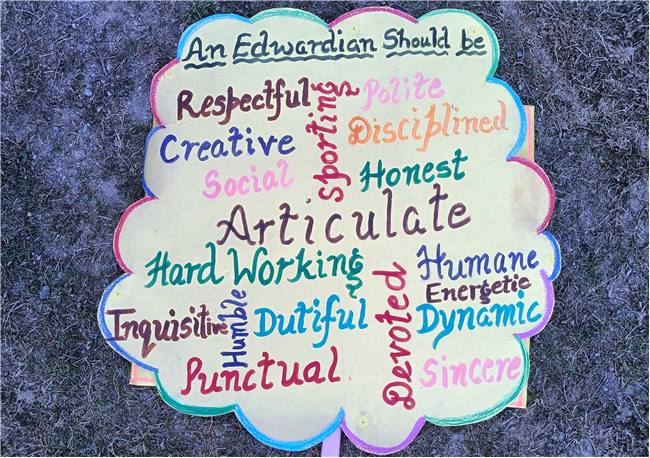 An Edwardian Should be
Respectful
Sporting
Polite
Creative
Disciplined
Social
Honest
Articulate
Hard Working
Humane
Energetic
Inquisitive
Humble
Dutiful
Devoted
Dynamic
Punctual
Sincere